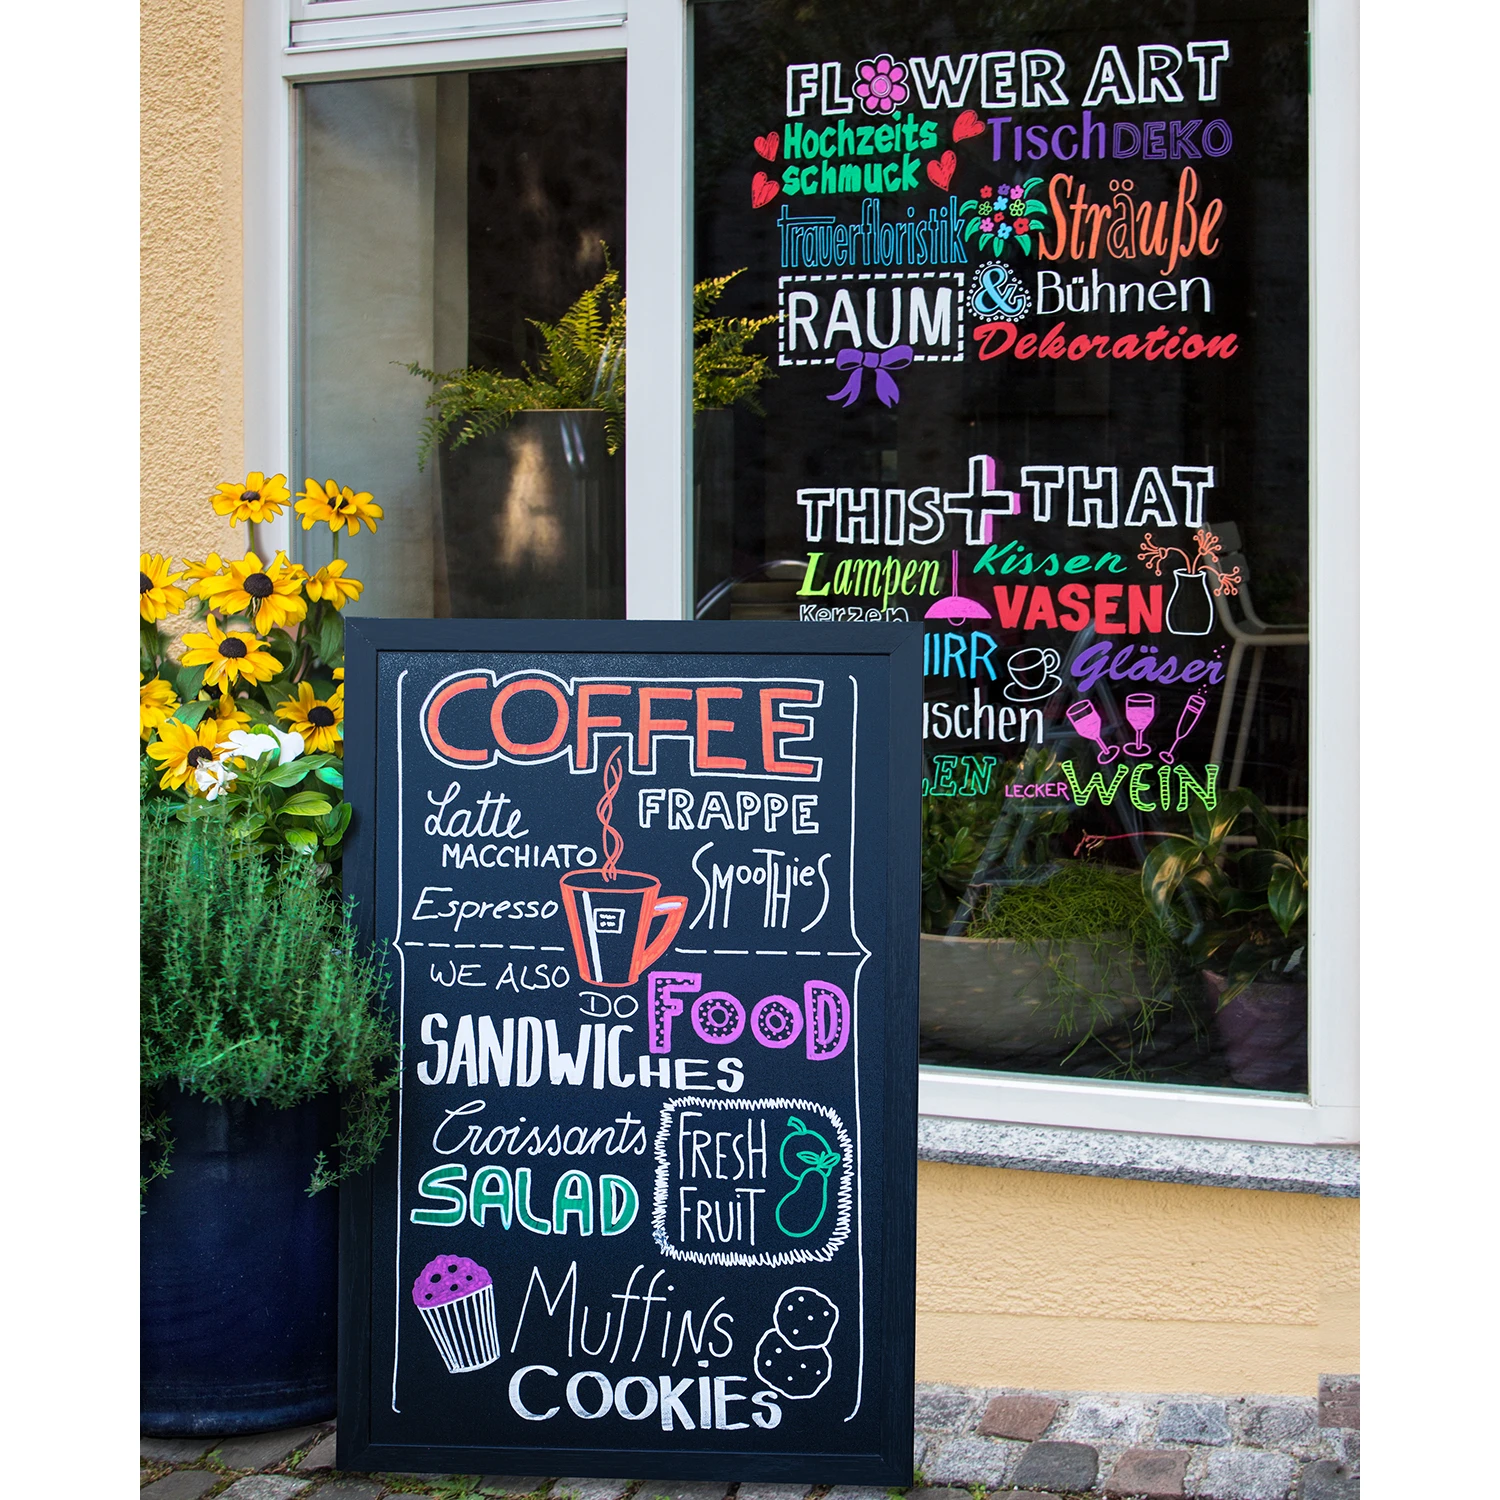 FLOWER ART
Hochzeits
schmuck
TischDEKO
Trauerfloristik
Sträuße
RAUM & Bühnen
Dekoration
THIS + THAT
Lampen
Kissen
Kerzen
VASEN
Gläser
LECKER WEIN
COFFEE
Latte
MACCHIATO
FRAPPE
Espresso
SMOOTHiES
WE ALSO
DO FOOD
SANDWICHES
Croissants
SALAD
FRESH
FRUIT
MuffiNs
COOKiES